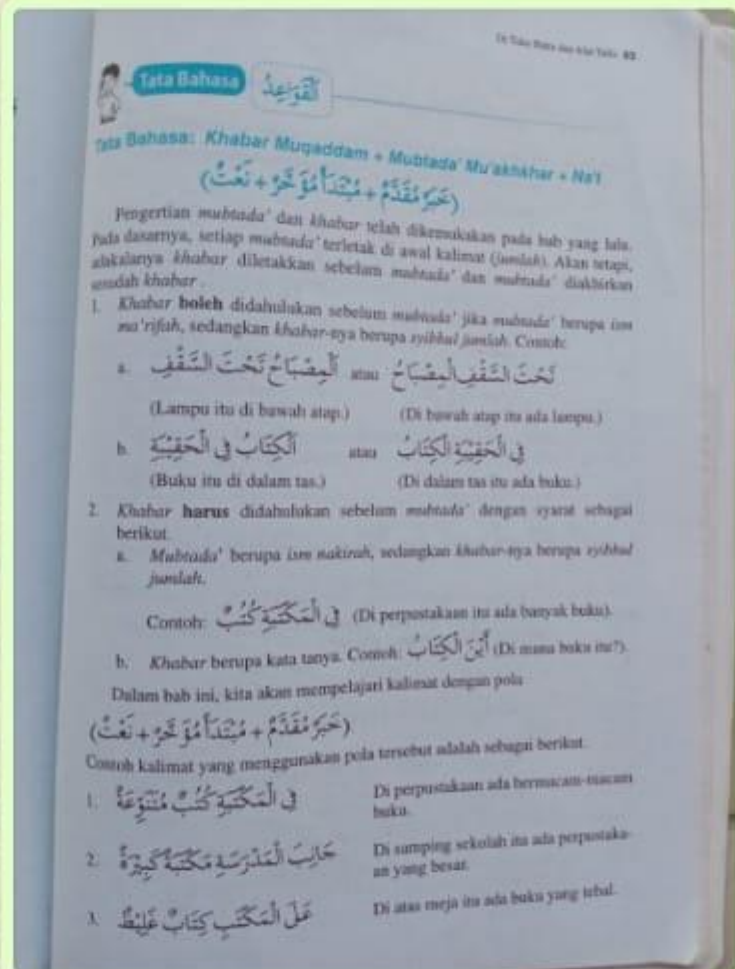 Di Toko Buku dan Alat Tulis 93
Tata Bahasa اَلْقَوَاعِدُ
Tata Bahasa: Khabar Muqaddam + Mubtada' Mu'akhkhar + Na't
(خَبَرٌ مُقَدَّمٌ + مُبْتَدَأٌ مُؤَخَّرٌ + نَعْتٌ)
Pengertian mubtada' dan khabar telah dikemukakan pada bab yang lalu.
Pada dasarnya, setiap mubtada' terletak di awal kalimat (jumlah). Akan tetapi,
adakalanya khabar diletakkan sebelum mubtada' dan mubtada' diakhirkan
sesudah khabar.
1. Khabar boleh didahulukan sebelum mubtada' jika mubtada' berupa ism
ma'rifah, sedangkan khabar-nya berupa syibhul jumlah. Contoh:
a. اَلْمِصْبَاحُ تَحْتَ السَّقْفِ atau تَحْتَ السَّقْفِ الْمِصْبَاحُ
(Lampu itu di bawah atap.) (Di bawah atap itu ada lampu.)
b. اَلْكِتَابُ فِي الْحَقِيْبَةِ atau فِي الْحَقِيْبَةِ الْكِتَابُ
(Buku itu di dalam tas.) (Di dalam tas itu ada buku.)
2. Khabar harus didahulukan sebelum mubtada' dengan syarat sebagai
berikut.
a. Mubtada' berupa ism nakirah, sedangkan khabar-nya berupa syibhul
jumlah.
Contoh: فِي الْمَكْتَبَةِ كُتُبٌ (Di perpustakaan itu ada banyak buku).
b. Khabar berupa kata tanya. Contoh: أَيْنَ الْكِتَابُ (Di mana buku itu?).
Dalam bab ini, kita akan mempelajari kalimat dengan pola
(خَبَرٌ مُقَدَّمٌ + مُبْتَدَأٌ مُؤَخَّرٌ + نَعْتٌ)
Contoh kalimat yang menggunakan pola tersebut adalah sebagai berikut.
1. فِي الْمَكْتَبَةِ كُتُبٌ مُتَنَوِّعَةٌ Di perpustakaan ada bermacam-macam
buku.
2. جَانِبَ الْمَدْرَسَةِ مَكْتَبَةٌ كَبِيْرَةٌ Di samping sekolah itu ada perpustaka-
an yang besar.
3. عَلَى الْمَكْتَبِ كِتَابٌ غَلِيْظٌ Di atas meja itu ada buku yang tebal.